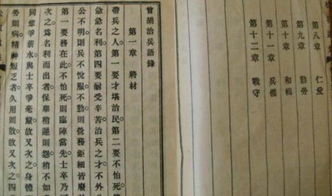 第八章 仁愛
第九章 勤勞
第十章 和輯
第十一章 兵機
第十二章 戰守
曾胡治兵語錄
第一章 將材
帶兵之人。第一要才堪治民。第二要不怕死
急急名利。第四要耐受辛苦。治民之才。不外
公不明。則兵不悅服。不勤則營務細鉅。皆廢
第一要務在此。不怕死。則臨陣當先。士卒乃
次之。爲名利而出者。保舉稍遲則怨。稍不如
同輩爭薪水。與士卒爭毫釐。故又次之。身
勞則病。精神乏短者。久用則散。故又次之。四